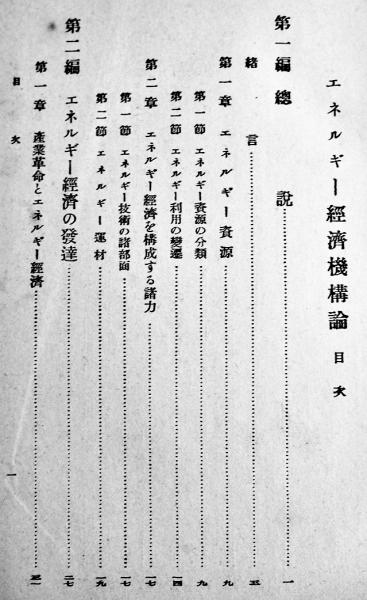 エネルギー經濟機構論 目次
第一編 總說……一
緒言……五
第一章 エネルギー資源……九
第一節 エネルギー資源の分類……九
第二節 エネルギー利用の變遷……一四
第二章 エネルギー經濟を構成する諸力……一七
第一節 エネルギー技術の諸部面……一七
第二節 エネルギー運材……一九
第二編 エネルギー經濟の發達……二七
第一章 產業革命とエネルギー經濟……
目次
一